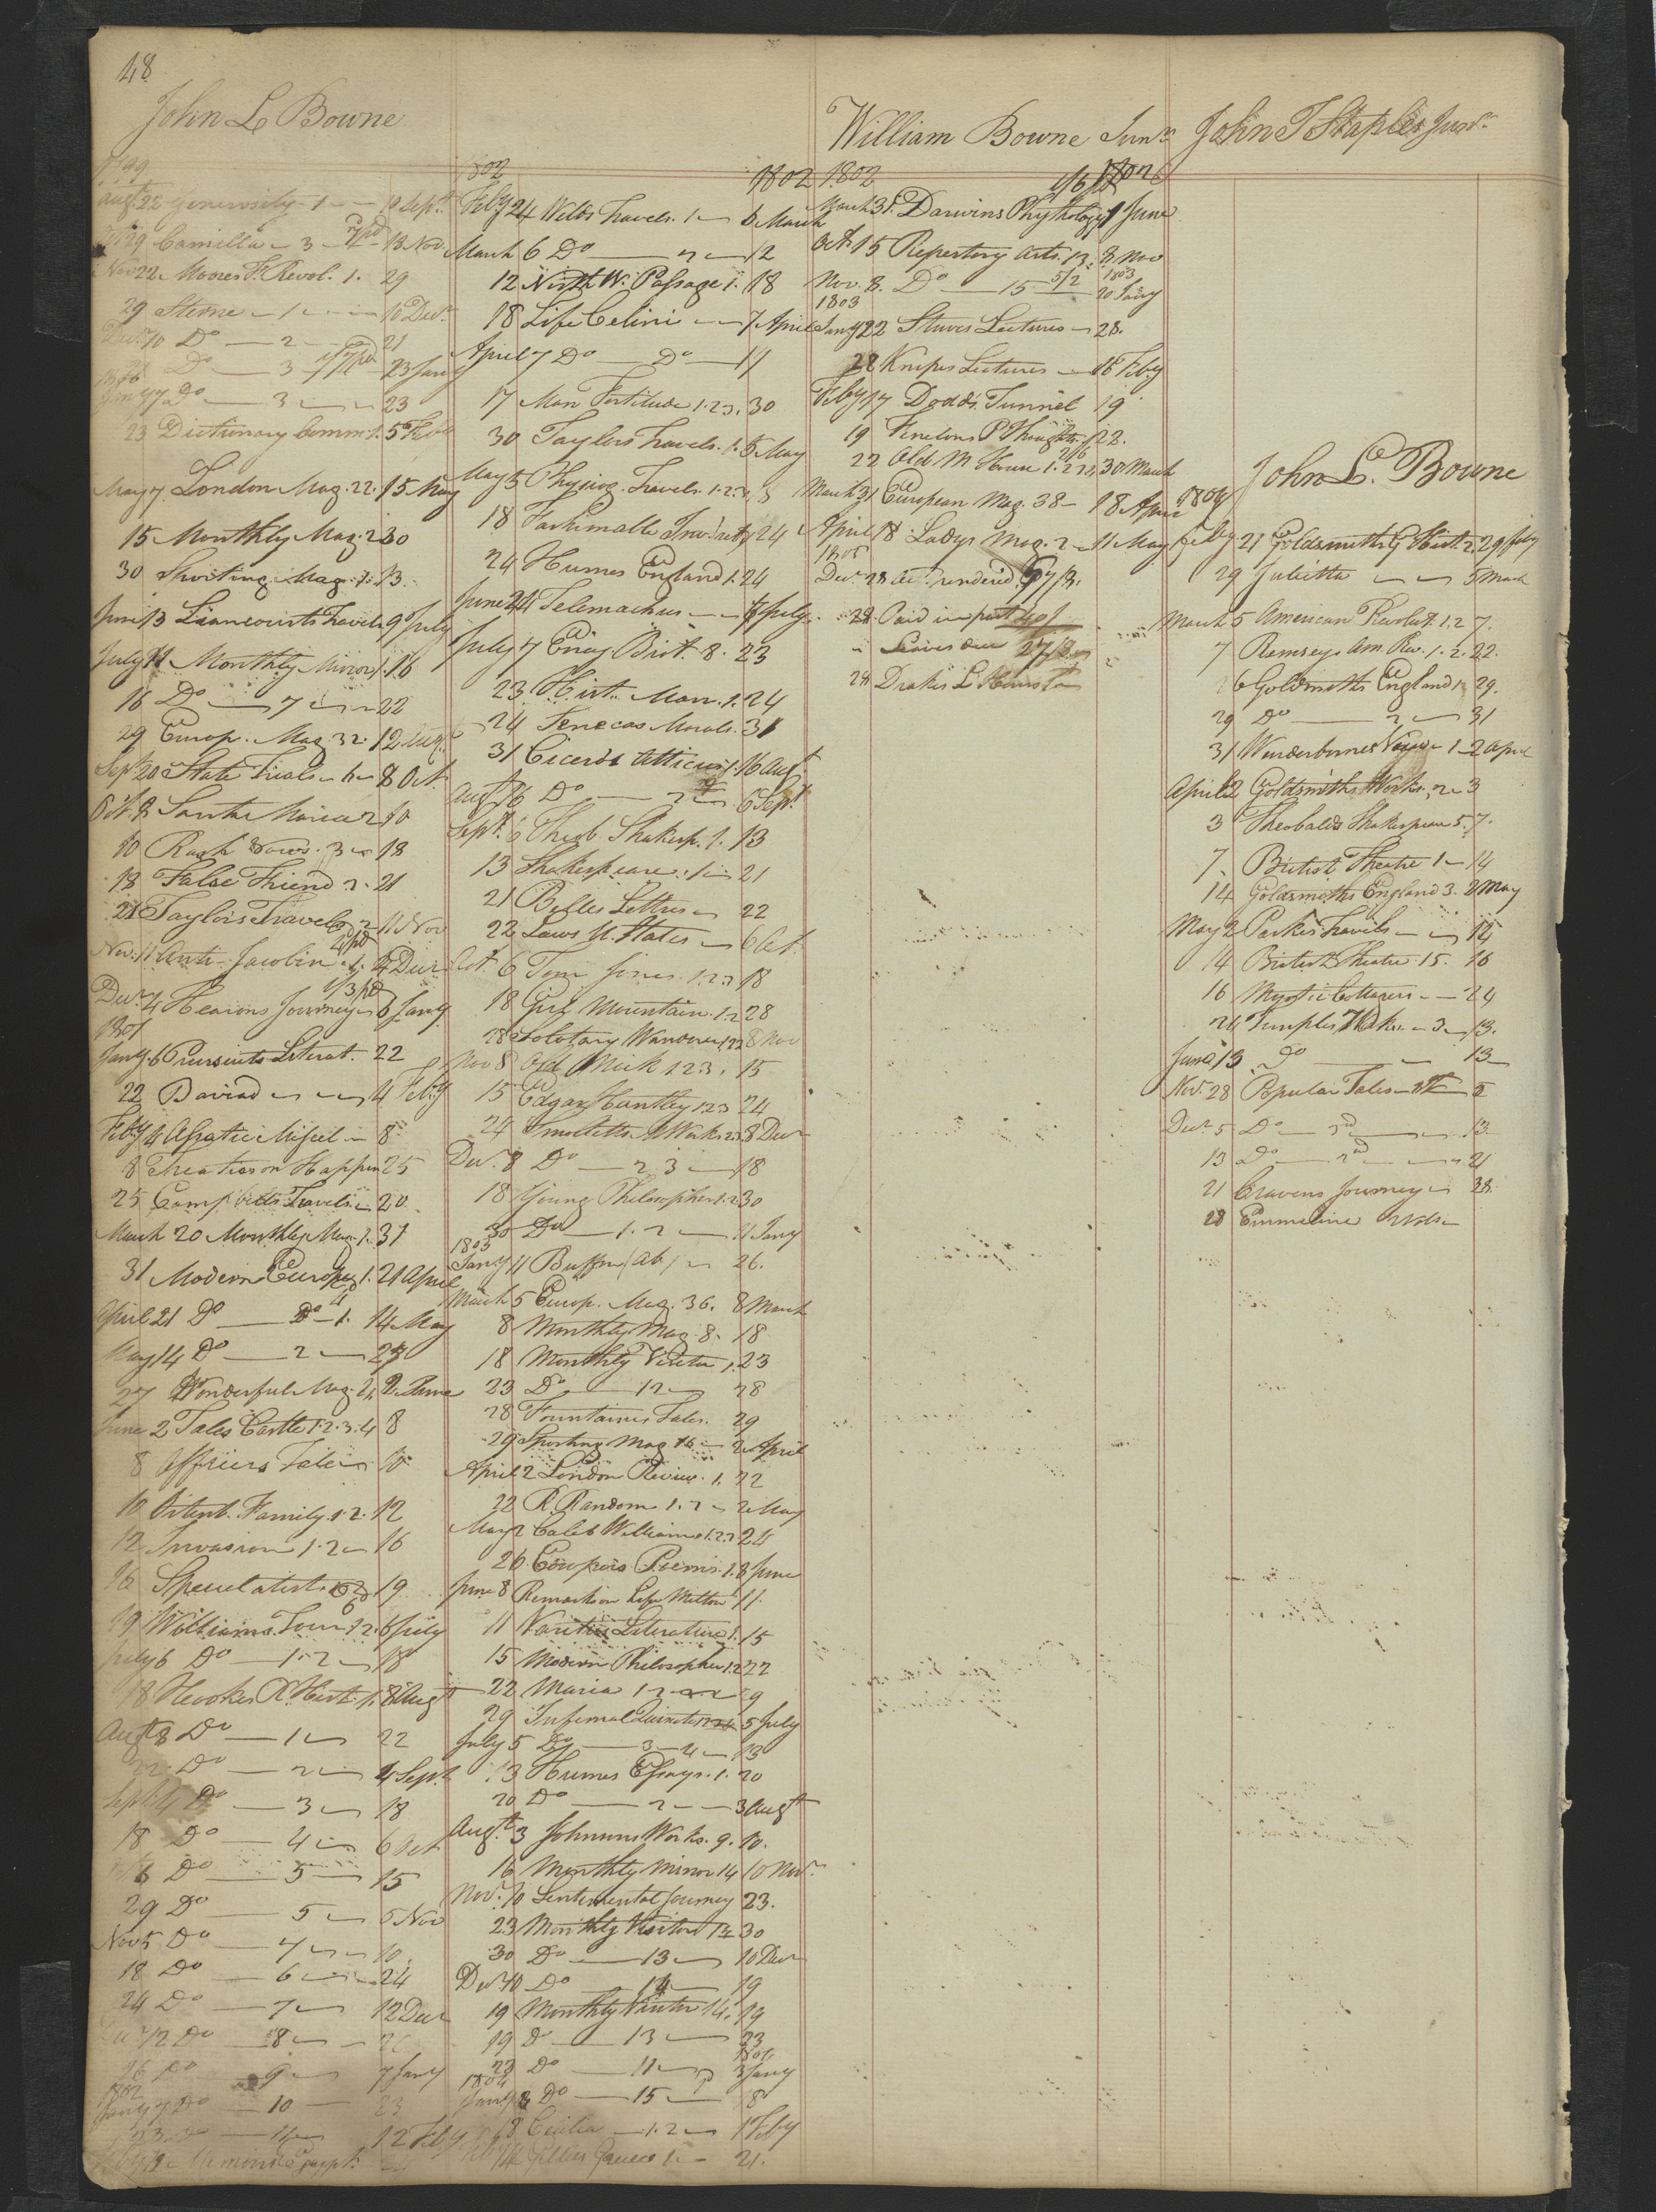 48
John L Bowne
1799
Augt 22 Generosity 1 10 Sept
29 Camilla 3 13 Nov.
Nov 22 Moores F. Revol. 1. 29
29 Sterne 1 10 Decr
Decr 10 Do 2 21
Do 3 23 Jany
Jany 7 Do 3 23
23 Dictionary Comm. 1. 5 Feby
May 7. London Mag. 22. 15 May
15 Monthly Mag. 2 30
30 Sporting Mag. 1. 13
June 13 Liancourts Travels 9 July
July 11 Monthly Mirror 1. 16
16 Do 7 22
29 Europ. Mag 32. 12 Augt
Sept 20 State Trials 8 Oct.
Oct. 8 Santa Maria 2 10
10 Rash Vows 3 18
18 False Friend 2. 21
21 Taylors Travels 2 11 Nov
Nov. 11 Anti-Jacobin 1. 4 Decr
1/3 pd
Decr 4 Hearons Journey 6 Jany
1801
Jany 6 Pursuits Literat. 22
22 Baviad 4 Feby
Feby 4 Asiatic Miscel 8
8 Treatise on Happin 25
25 Campbells Travels 20
March 20 Monthly Mag. 1. 31
31 Modern Europe 1. 21 April
April 21 Do Do 1. 14 May
May 14 Do 2 27
27 Wonderful Mag. 2. 2 June
June 2 Tales Castle 1.2.3.4 8
8 Officers Tales 10
10 Orient. Family. 1.2. 12
12 Invasion 1.2 16
16 Speculatist 19
19 Williams Tour 1 2. 6 July
July 6 Do 1.2 18
18 Hookes R. Hist. 1. 8 Augt
Augt 8 Do 1 22
22 Do 2 4 Sept
Sept 4 Do 3 18
18 Do 4 6 Oct
6 Do 5 15
29 Do 5 5 Nov
Nov 5 Do 4 10
18 Do 6 24
24 Do 7 12 Decr
12 Do 8
26 Do 9 7 Jany
1802
Jany 7 Do 10 23
23 Do 12 Feby
1802 1802
Feby 24 Welds Travels. 1 6 March
March 6 Do 2 12
12 North W. Passage 1. 18
18 Life Celini 7 April
April 7 Do Do 17
17 Man Fortitude 1.2.3. 30
30 Taylors Travels. 1. 5 May
May 5 Physiog. Travels. 1.2.3
18 24
24 Humes England 1. 24
June 24 Telemachus 7 July
July 7 Ency Brit. 8. 23
23 Hist. Man. 1. 24
24 Senecas Morals. 31
31 Ciceros Atticus 1. 16 Augt
Augt 16 Do 2 6 Sept
Sept. 6 Theob Shakesp. 1. 13
13 Shakespeare 1 21
21 Belles Lettres 22
22 Laws U. States 6 Oct.
Oct. 6 Tom Jones 1.2.3 18
18 Girl Mountain. 1.2 28
28 Solotary Wanderer 1.2 8 Nov
Nov 8 Old Nick 1 2 3. 15
15 Edgar Huntley 1 2 3 24
24 Smolletts Works 8 Decr
Decr. 8 Do 2 3 18
18 Young Philosopher 1.2 30
30 Do 1.2 11 Jany
1803
Jany 11 Buffon (Ab) 26.
March 5 Europ. Mag. 36. 8 March
8 Monthly Mag. 8. 18
18 Monthly Visitor 1. 23
23 Do 12 28
28 Fountaines Tales. 29
29 Sporting Mag 16 2 April
April 2 London Review. 1. 22
22 R. Random 1.2 2 May
May 2 Caleb Williams 1.2.3 24
26 Cowpers Poems. 1. 8 June
June 8 Remarks on Life Milton 11.
11 Varities Literature 1. 15
15 Modern Philosopher 1.2 22
22 Maria 1 2 29
29 Infernal Quixote 5 July
July 5 Do 3 4 13
13 Humes Essays. 1. 20
20 Do 2 3 Augt
Augt. 3 Johnsons Works. 9. 10.
16 Monthly Mirror 14 10 Nov.
Nov. 10 Sentimental Journey 23.
23 Monthly Visitor 12 30
30 Do 13 10 Decr
Decr 10 Do 14 19
19 Monthly Visitor 14. 19
19 Do 13 23
1804
23 Do 11 3 Jany
1804
Jany 3 Do 15 8
8 Cecilia 1.2 1 Feby
Gillies Greece 1. 21.
William Bowne Junr
1802
March 31. Darwins Phytology 1 June
Oct. 15 Repertory Arts. 13. 8 Nov
Nov. 8. Do 15 5/2 20 Jany
1803
Jany 22 Stuves Lectures 28.
28 Knipes Lectures 16 Feby
Feby 17 Dodds Tunnel 19
19 Fenelons P Thoughts 22.
22 Old M House 1.2.3. 30 March
March 31 European Mag. 38 18 April
April 18. Ladys Mag. 2 11 May
1805
Decr 28 act rendered 67/3.
28. Paid in part 40/
Leaves due 27/3
28 Drakes L Hours
John T Staples Junr
John L. Bowne
1804
Feby 21 Goldsmiths G Hist. 2. 29 Feby
29 Julietta 5 March
March 5 American Revolut. 1.2 7.
7 Remseys Am. Rev. 1.2. 22.
26 Goldsmiths England 1 29.
29 Do 2 31
31 2 April
April 2 Goldsmiths Works. 2 3
3 Theobalds Shakespeare 5. 7.
7. British Theatre 1 14
14 Goldsmiths England 3. 2 May
May 2 Parkes Travels 14
14 British Theatre 15. 16
16 Mystic Cottager 24
24 Temples Works. 3 13.
June 13 Do 13
Nov. 28 Popular Tales 5
Decr 5 Do 2d 13
13 Do 2d 21
21 Cravens Journey 28.
28 Emmeline 2 Vols